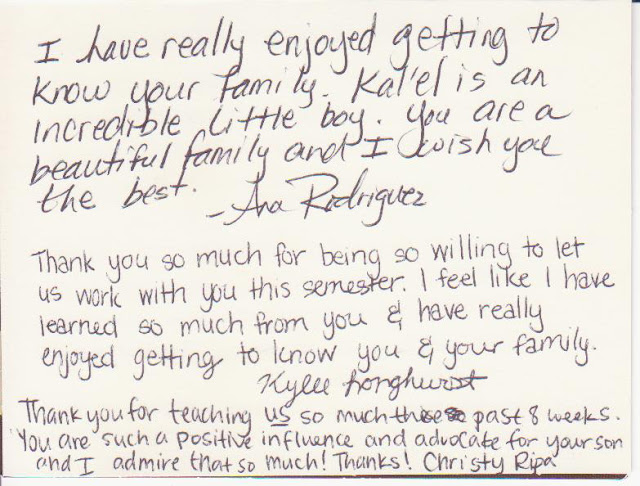 I have really enjoyed getting to
know your family. Kal'el is an
incredible little boy. You are a
beautiful family and I wish you
the best.
-Ana Rodriguez
Thank you so much for being so willing to let
us work with you this semester. I feel like I have
learned so much from you & have really
enjoyed getting to know you & your family.
Kylee Longhurst
Thank you for teaching us so much these past 8 weeks.
You are such a positive influence and advocate for your son
and I admire that so much! Thanks! Christy Ripa